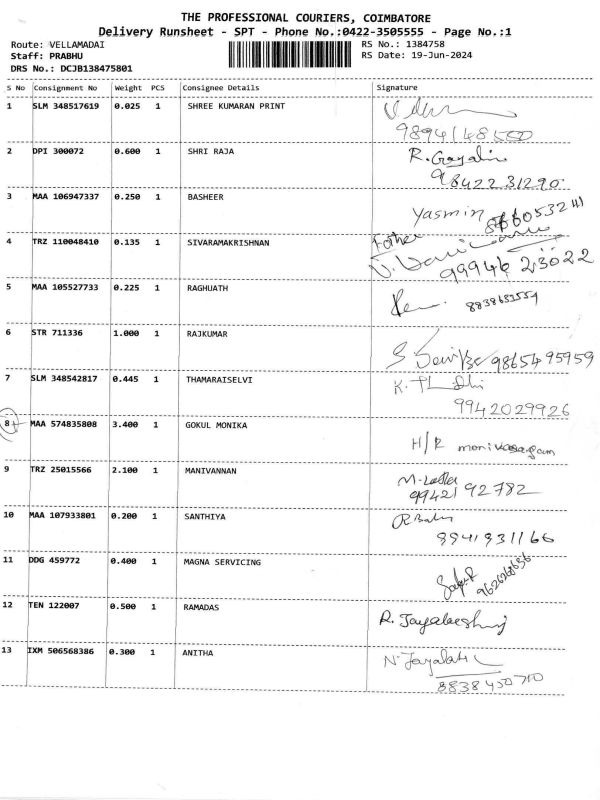 THE PROFESSIONAL COURIERS, COIMBATORE
Delivery Runsheet - SPT - Phone No.:0422-3505555 - Page No.:1
Route: VELLAMADAI RS No.: 1384758
Staff: PRABHU RS Date: 19-Jun-2024
DRS No.: DCJB138475801
S No Consignment No Weight PCS Consignee Details Signature
1 SLM 348517619 0.025 1 SHREE KUMARAN PRINT
2 DPI 300072 0.600 1 SHRI RAJA
9842231290
3 MAA 106947337 0.250 1 BASHEER Yasmin
4 TRZ 110048410 0.135 1 SIVARAMAKRISHNAN Father
99946 23022
5 MAA 105527733 0.225 1 RAGHUATH
6 STR 711336 1.000 1 RAJKUMAR
9865495959
7 SLM 348542817 0.445 1 THAMARAISELVI
9942029926
8 MAA 574835808 3.400 1 GOKUL MONIKA
H/R
9 TRZ 25015566 2.100 1 MANIVANNAN
99421 92782
10 MAA 107933801 0.200 1 SANTHIYA
9941931166
11 DDG 459772 0.400 1 MAGNA SERVICING
12 TEN 122007 0.500 1 RAMADAS
13 IXM 506568386 0.300 1 ANITHA